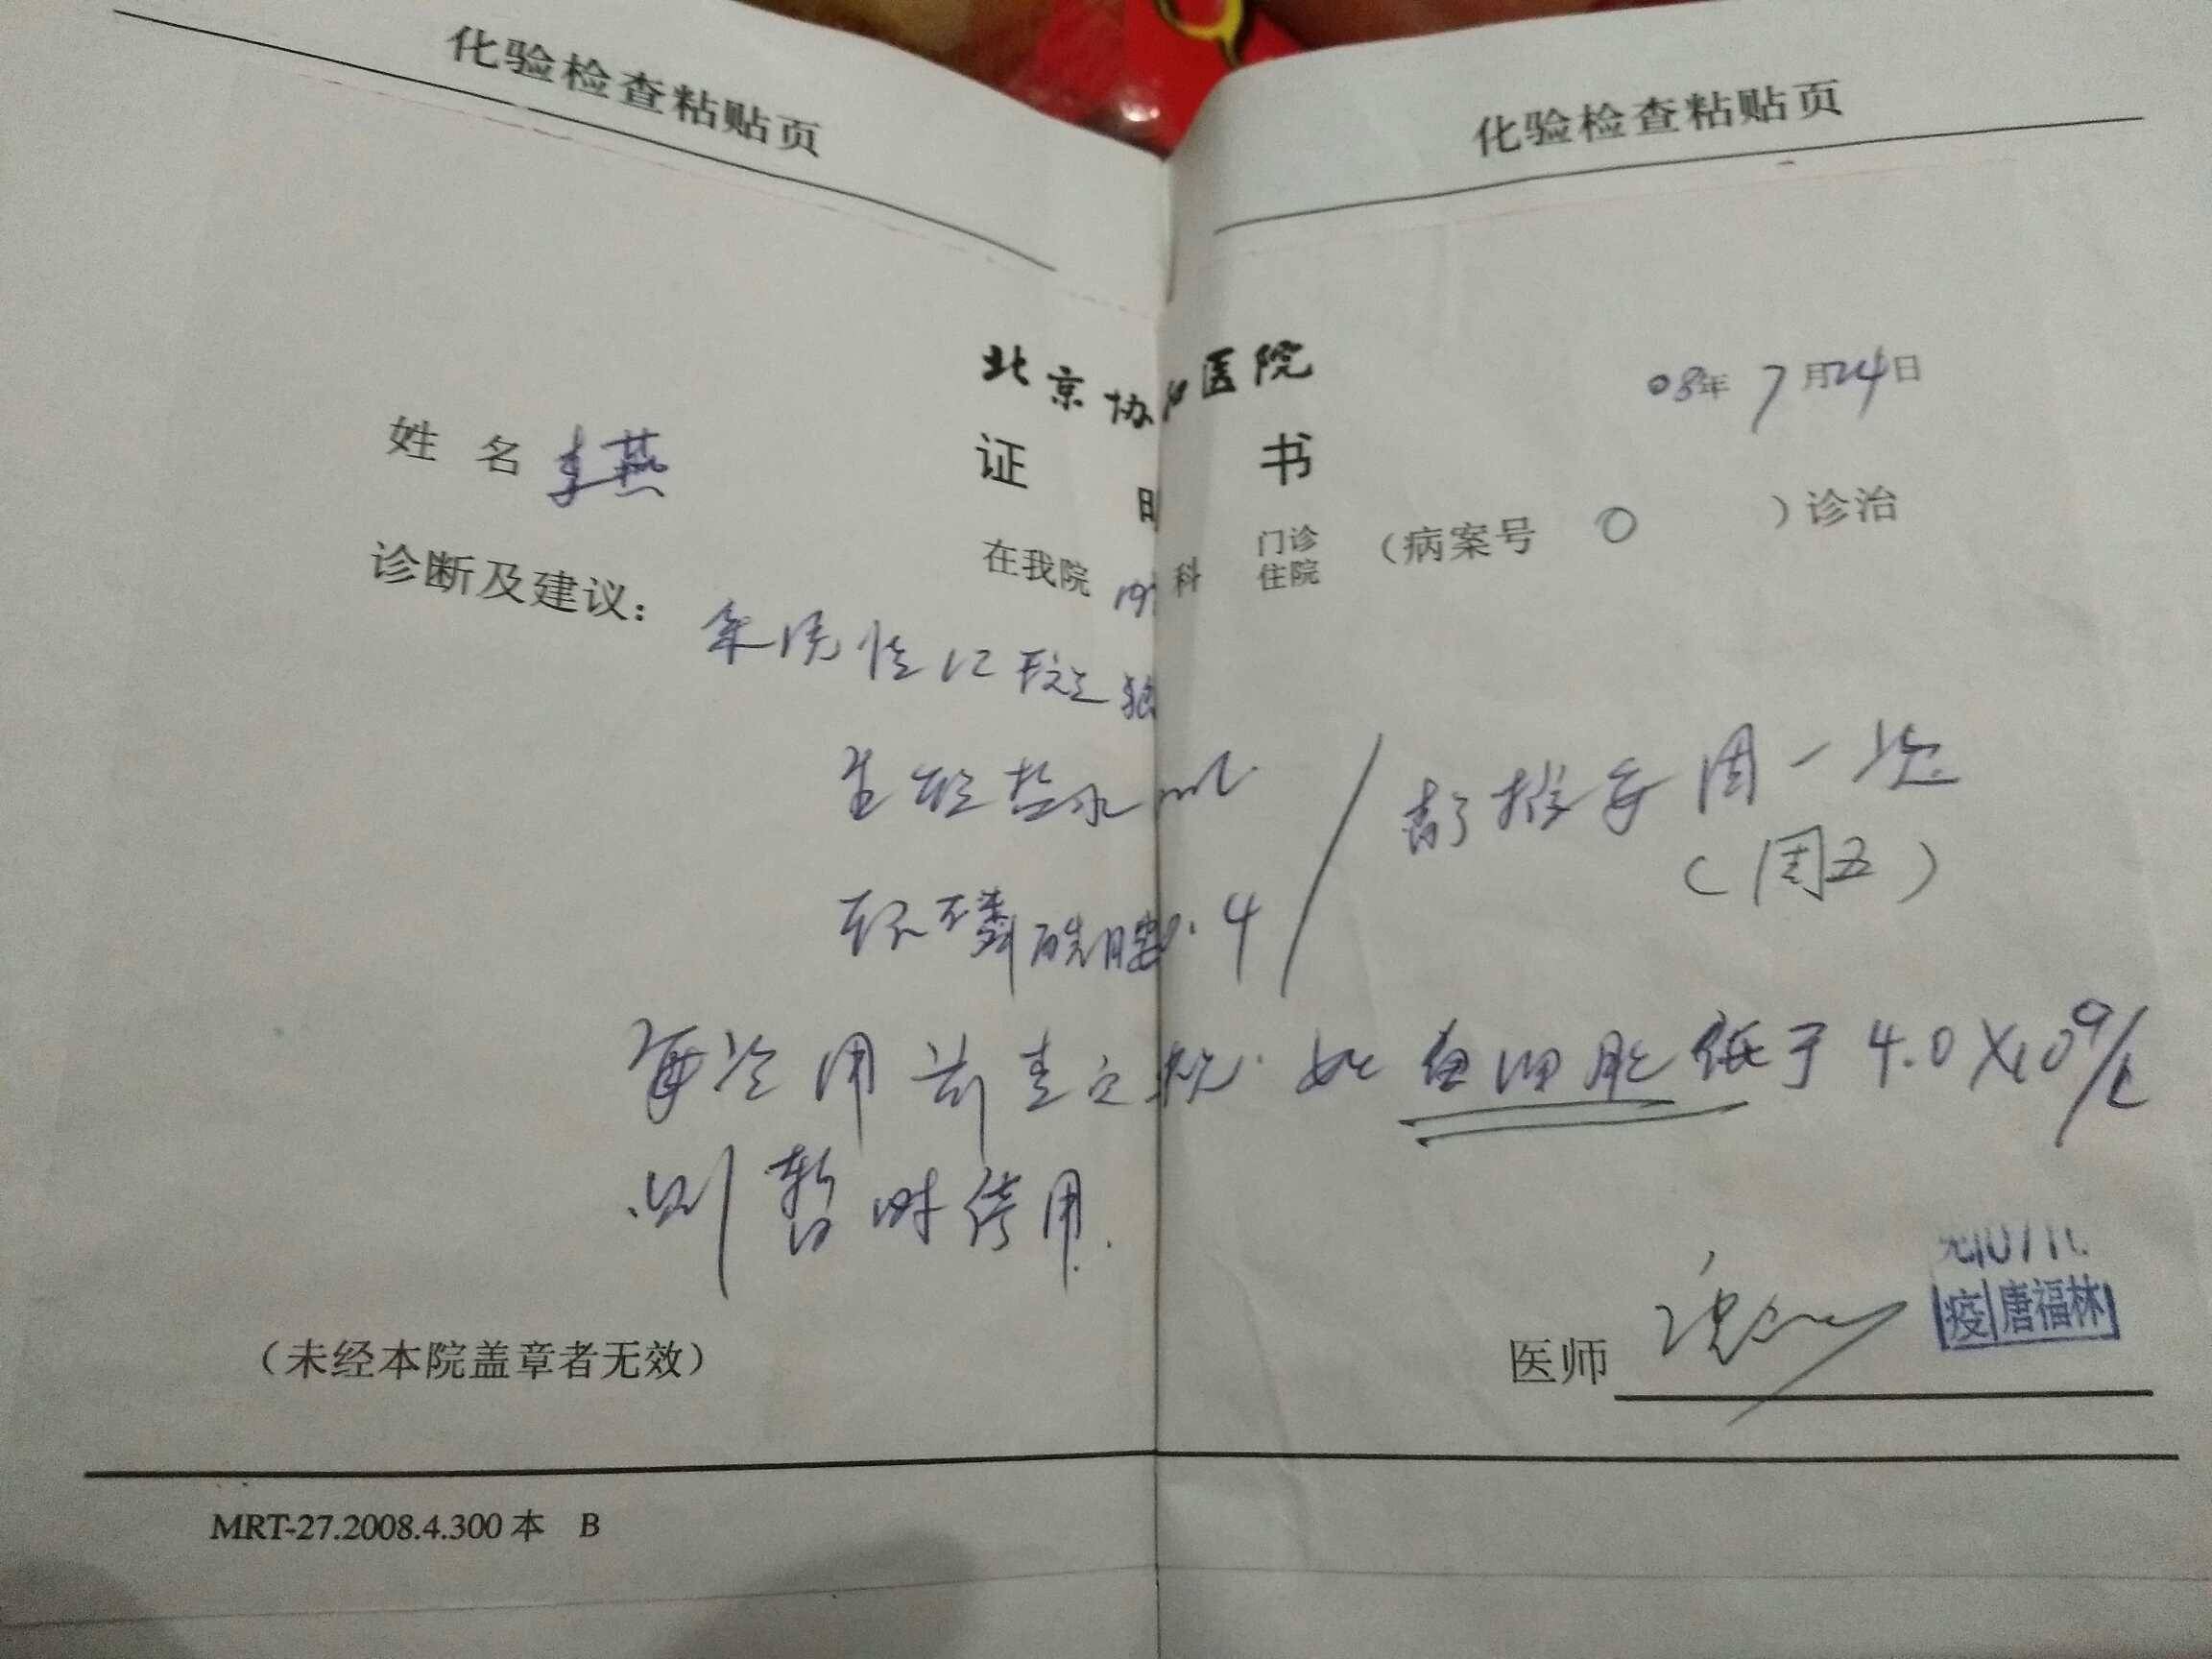 化验检查粘贴页
化验检查粘贴页
北京协和医院
08年7月24日
姓名 李燕
证 书
在我院 科 门诊 住院 (病案号 0 )诊治
诊断及建议:
系统性红斑狼
生理盐水 ml
静推每周一次
(周五)
环磷酰胺 . 4
每次用前查血常规. 如白细胞低于4.0×10⁹/L
则暂时停用.
疫 唐福林
医师
(未经本院盖章者无效)
MRT-27.2008.4.300本 B